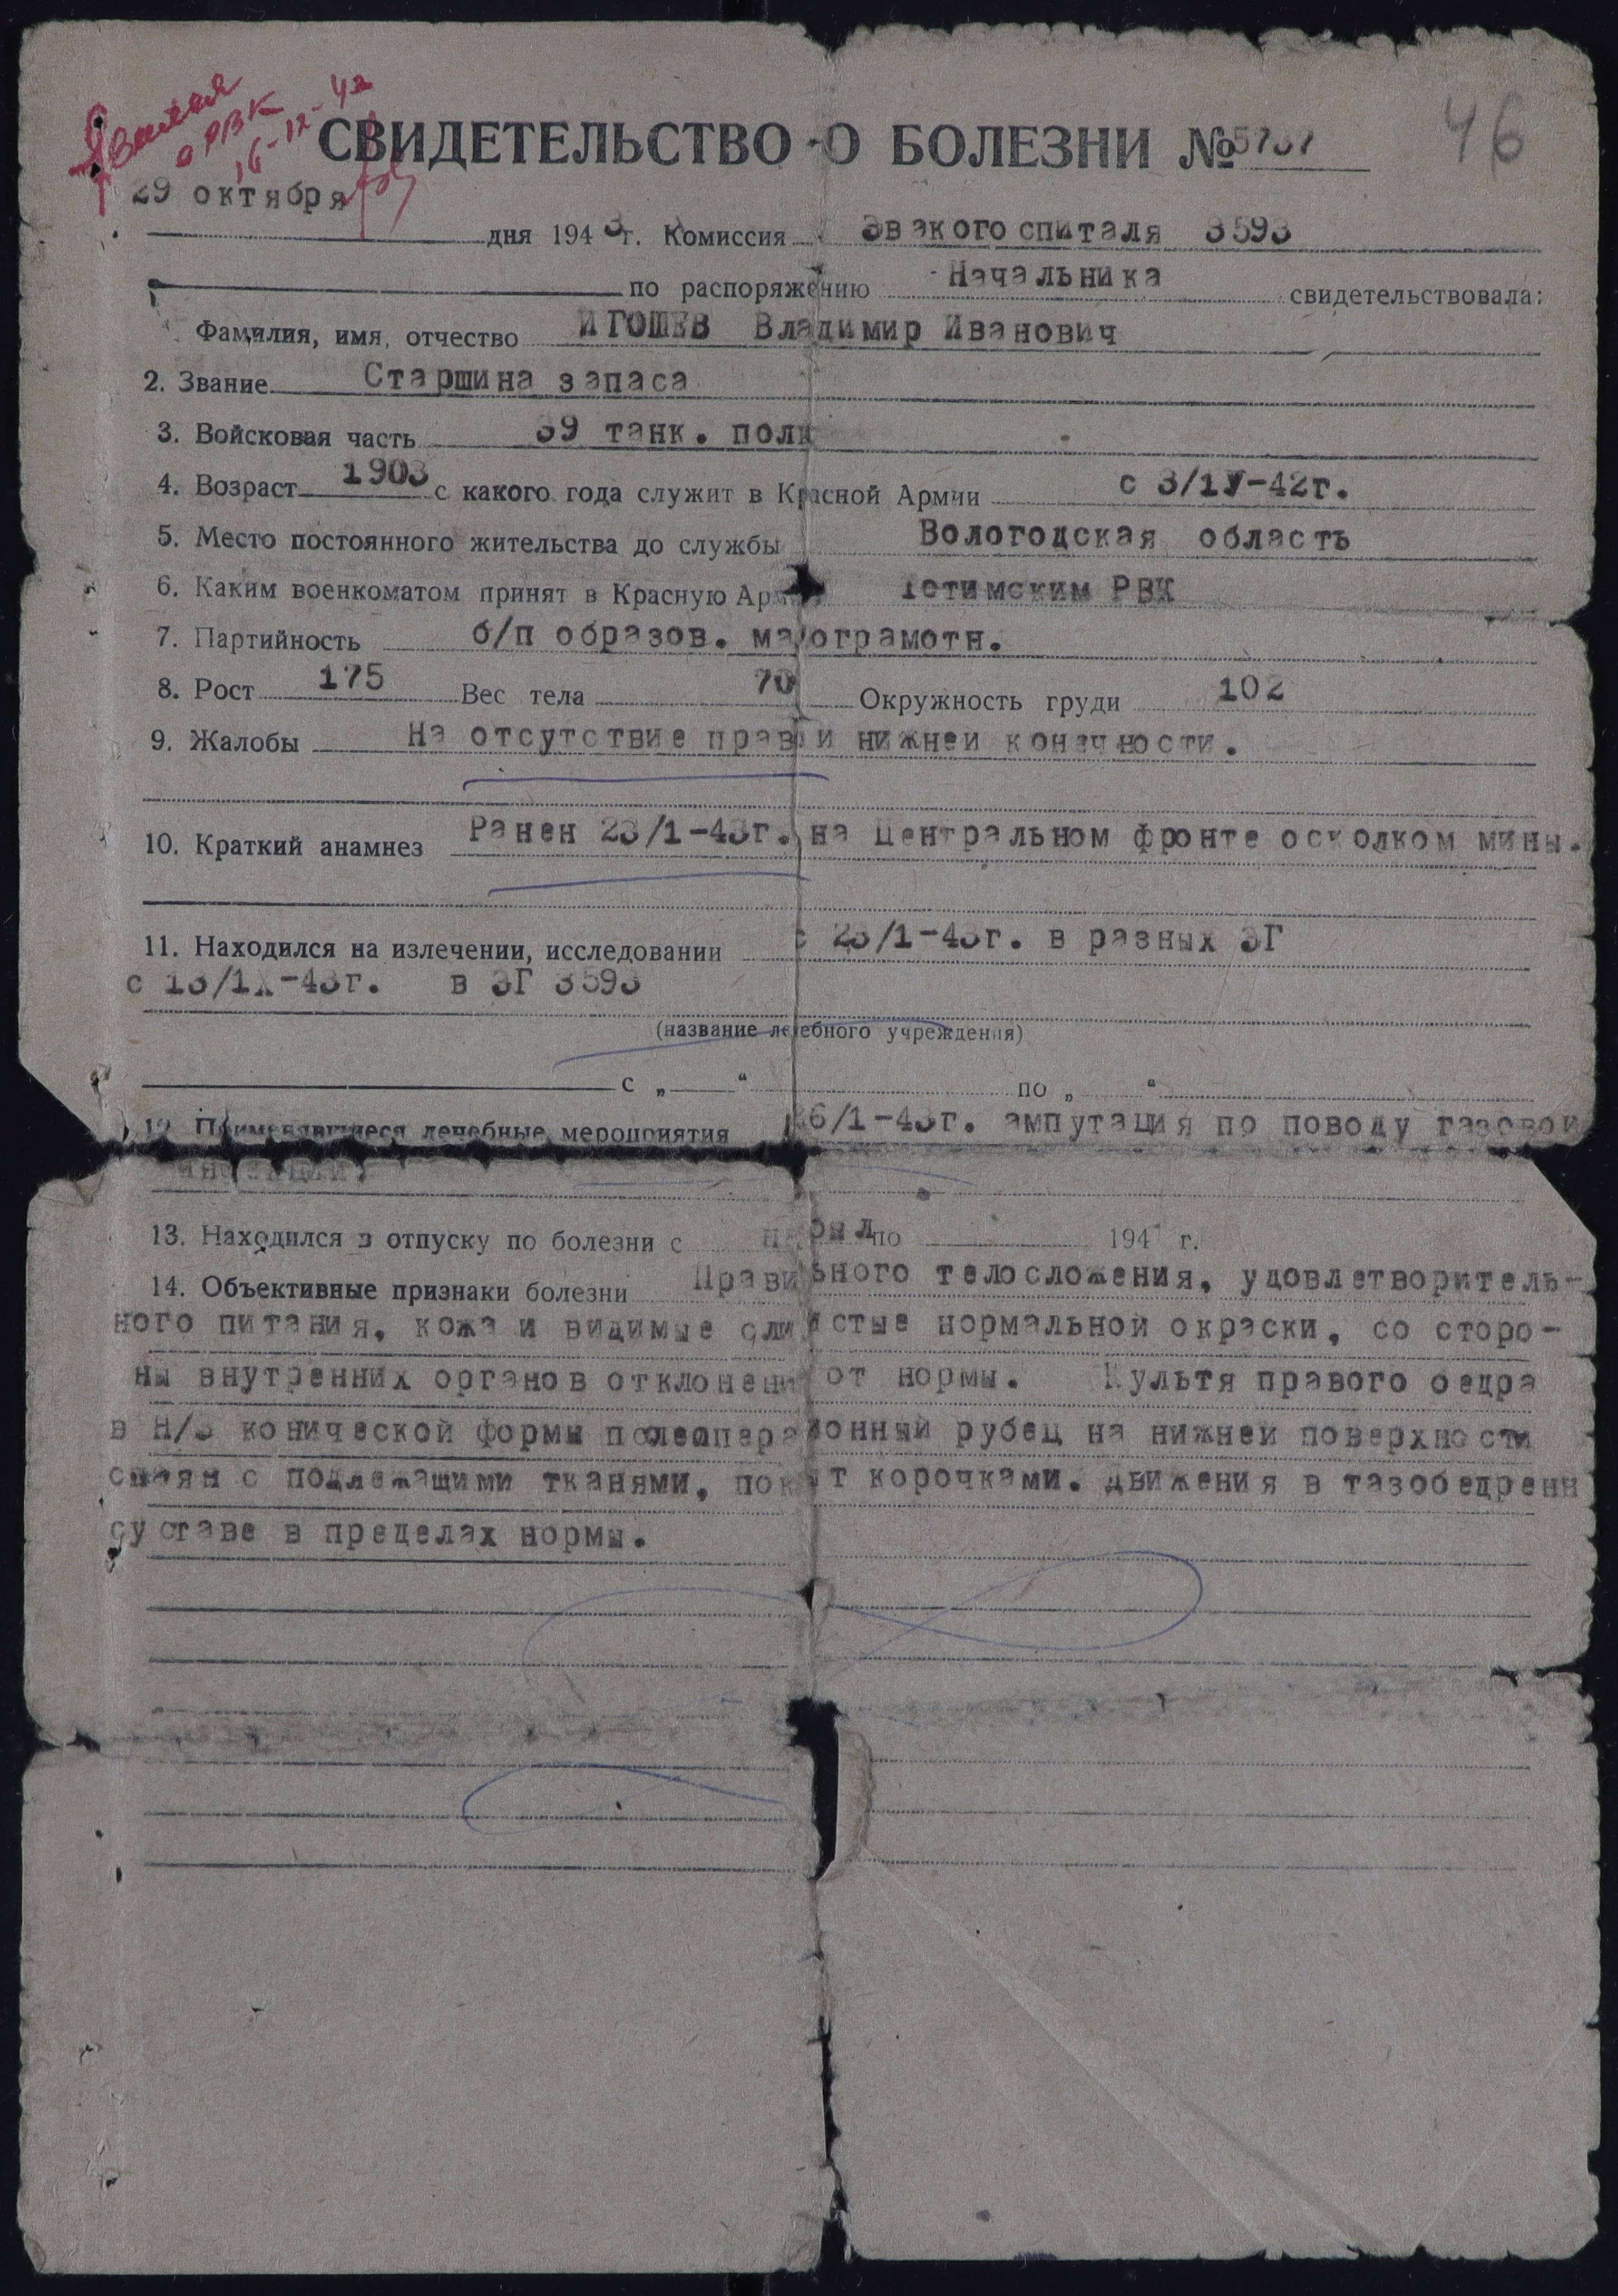 РВК
16-12-42
46
СВИДЕТЕЛЬСТВО О БОЛЕЗНИ №
29 октября
дня 1943 г. Комиссия Эвакогоспиталя 3593
по распоряжению Начальника свидетельствовала:
Фамилия, имя, отчество ИГОШЕВ Владимир Иванович
2. Звание Старшина запаса
3. Войсковая часть 39 танк. полк
4. Возраст 1903 с какого года служит в Красной Армии с 3/1У-42г.
5. Место постоянного жительства до службы Вологодская область
6. Каким военкоматом принят в Красную Арм Тотимским РВК
7. Партийность б/п образов. малограмотн.
8. Рост 175 Вес тела 70 Окружность груди 102
9. Жалобы На отсутствие правой нижней конечности.
10. Краткий анамнез Ранен 23/1-43г. на Центральном фронте осколком мины.
11. Находился на излечении, исследовании с 23/1-43г. в разных ЭГ
с 13/1Х-43г. в ЭГ 3593
(название лечебного учреждения)
с „ “ по „ “
12. Применявшиеся лечебные мероприятия 26/1-43г. ампутация по поводу газовой
инфекции.
13. Находился в отпуску по болезни с не был по 194 г.
14. Объективные признаки болезни Правильного телосложения, удовлетворитель-
ного питания, кожа и видимые слизистые нормальной окраски, со сторо-
ны внутренних органов отклонений от нормы. Культя правого бедра
в Н/З конической формы послеоперационный рубец на нижней поверхности
спаян с подлежащими тканями, покрыт корочками. Движения в тазобедренн
суставе в пределах нормы.